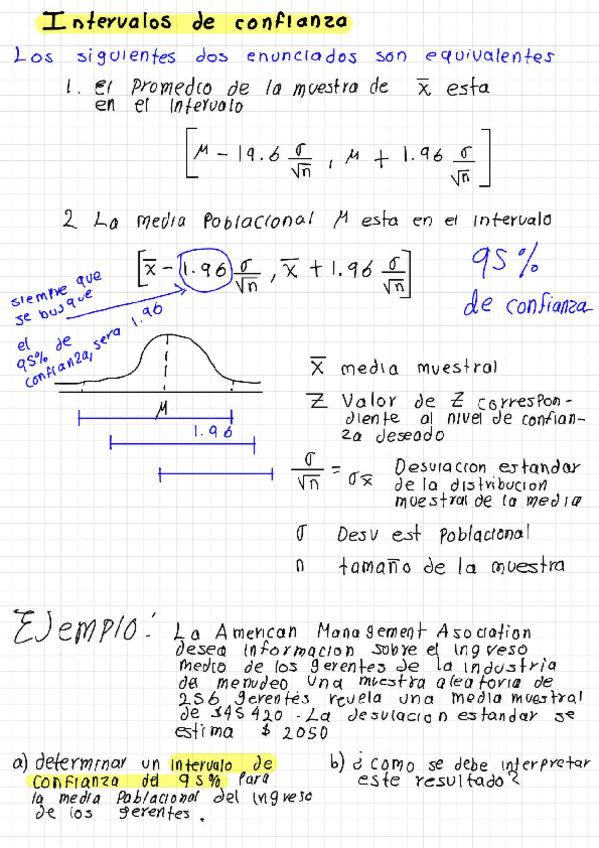 Intervalos de confianza
Los siguientes dos enunciados son equivalentes
1. el Promedio de la muestra de x̄ esta
en el intervalo
[μ - 19.6 σ/√n , μ + 1.96 σ/√n]
2 La media Poblacional μ esta en el intervalo
[x̄ - 1.96 σ/√n , x̄ + 1.96 σ/√n]
95%
de confianza
siempre que
se busque
el
95% de
confianza, sera 1.96
μ
1.96
x̄ media muestral
Z Valor de Z correspon-
diente al nivel de confian-
za deseado
σ/√n = σx̄ Desviacion estandar
de la distribucion
muestral de la media
σ Desv est Poblacional
n tamaño de la muestra
Ejemplo:
La American Management Asociation
desea informacion sobre el ingreso
medio de los gerentes de la industria
del menudeo una muestra aleatoria de
256 gerentes revela una media muestral
de $45 420 - La desviacion estandar se
estima $ 2050
a) determinar un intervalo de
confianza del 95% para
la media Poblacional del ingreso
de los gerentes.
b) ¿como se debe interpretar
este resultado?